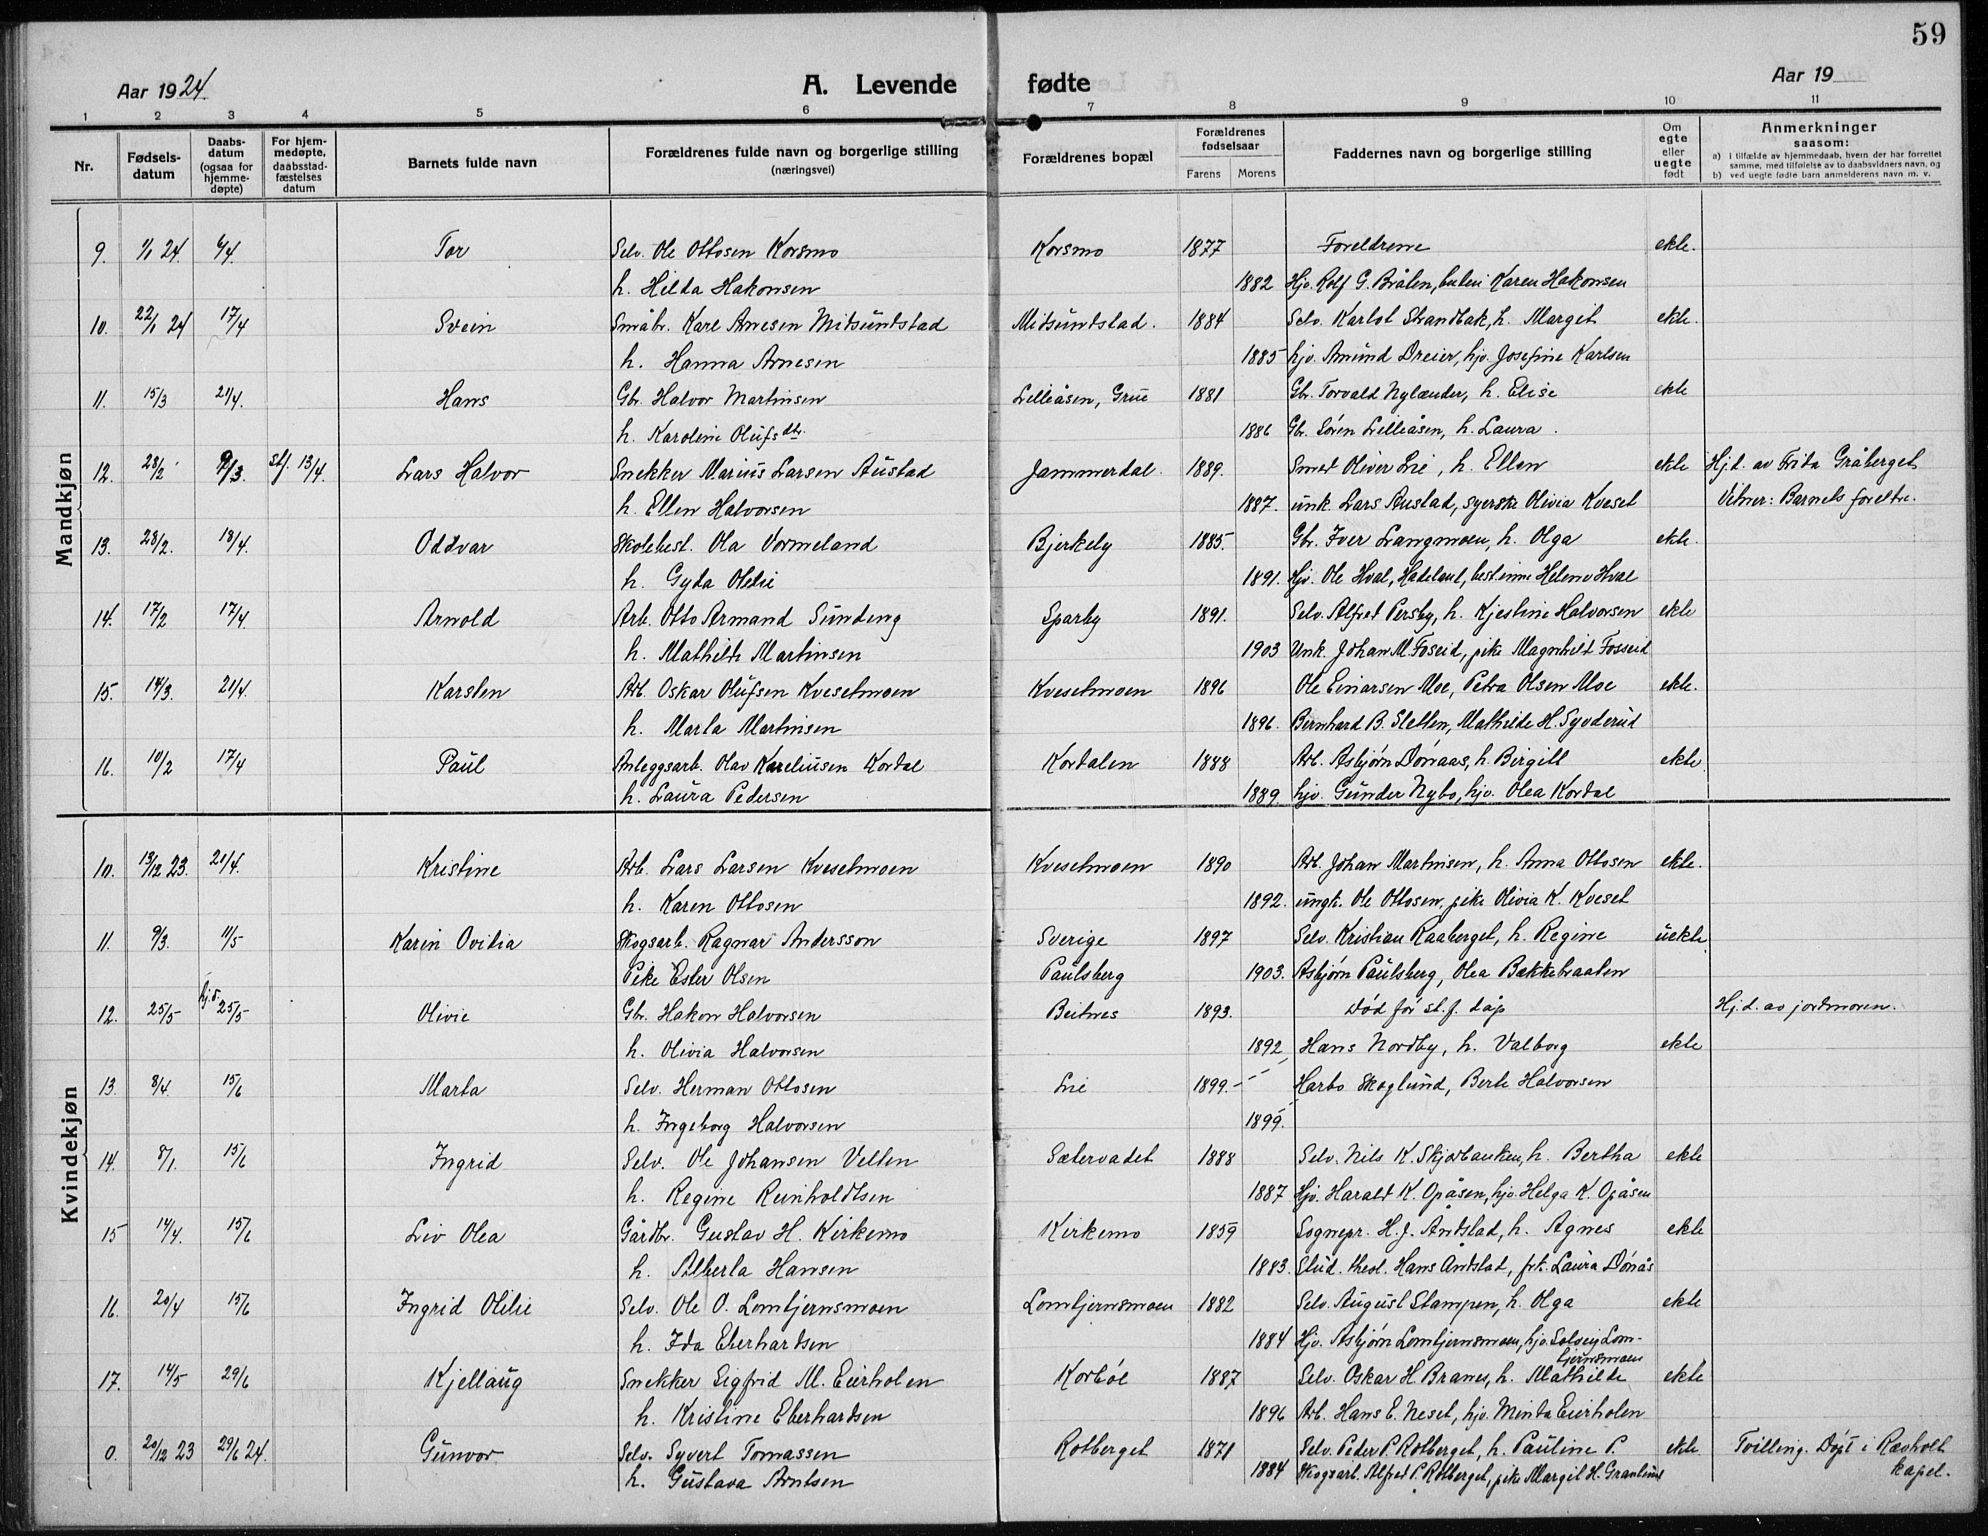 59
Aar 1924.
A. Levende fødte
Aar 19
1 2 3 4 5 6 7 8 9 10 11
Nr.
Fødsels-
datum
Daabs-
datum
(ogsaa for
hjemme-
døpte)
For hjem-
medøpte,
daabsstad-
fæstelses
datum
Barnets fulde navn
Forældrenes fulde navn og borgerlige stilling
(næringsvei)
Forældrenes bopæl
Forældrenes
fødselsaar
Farens Morens
Faddernes navn og borgerlige stilling
Om
egte
eller
uegte
født
Anmerkninger
saasom:
a) i tilfælde av hjemmedaab, hvem der har forrettet
samme, med tilføielse av to daabsvidners navn, og
b) ved uegte fødte barn anmelderens navn m. v.
Mandkjøn
9. 1/1 24. 6/4. Tor Selv. Ole Ottosen Korsmo Korsmo 1877 Foreldrene ekte.
h. Hilda Hakonsen 1882 Hjv. Rolf G. Bråten, Karen Hakonsen
10. 22/1 24 17/4 Svein Småbr. Karl Arnesen Midsundstad Midsundstad. 1884 Selv. Karlot Strandbak, h. Margit ekte.
h. Hanna Arnesen 1885 hjv. Amund Dreier, hjv. Josefine Karlsen
11. 15/3 21/4. Hans Gbr. Halvor Martinsen Lilleåsen, Grue 1881 Gbr. Torvald Nylænder, h. Elise ekte
h. Karoline Olufsdtr. 1886 Gbr. Søren Lilleåsen, h. Laura.
12. 28/2 9/3. stf. 13/4. Lars Halvor Snekker Marius Larsen Austad Jammerdal. 1889. Smed Oliver Lie, h. Ellen ekte Hj.d. av Frida Gråberget
h. Ellen Halvorsen 1887. unk. Lars Austad, syerske Olivia Kveset Vitner: Barnets foreldre.
13. 28/2. 18/4. Oddvar Skolebest. Ola Vormeland Bjerkely 1885. Gbr. Iver Langmoen, h. Olga ekte.
h. Gyda Otelie 1891. Hjv. Ole Hval, Hadeland, best.inne Helene Hval
14. 17/2 17/4. Arnold Arb. Otto Armand Sundeng Sparby 1891. Selv. Alfred Persby, h. Kjestine Halvorsen ekte
h. Mathilde Martinsen 1903 Unk. Johan M. Foseid, pike Magnhild Fosseid
15. 14/3. 21/4. Karsten Arb. Oskar Olufsen Kvesetmoen Kvesetmoen 1896 Ole Einarsen Moe, Petra Olsen Moe ekte.
h. Marta Martinsen 1896. Bernhard B. Sletten, Mathilde H. Syverud
16. 10/2 17/4 Paul Anleggsarb. Olav Kareliusen Kordal Kordalen 1888 Arb. Asbjørn Dønaas, h. Birgitt ekte
h. Laura Pedersen 1889 hjv. Gunder Nybo, hjv. Olea Kordal
Kvindekjøn
10. 13/12 23. 20/4. Kristine Arb. Lars Larsen Kvesetmoen Kvesetmoen 1890 Arb. Johan Martinsen, h. Anna Ottosen ekte.
h. Karen Ottosen 1892. ungk. Ole Ottosen, pike Olivia K. Kveset
11. 9/3. 11/5 Karin Ovidia Skogsarb. Ragnar Andersson Sverige 1897 Selv. Kristian Raaberget, h. Regine uekte
Pike Ester Olsen Paulsberg 1903. Asbjørn Paulsberg, Olea Bakkebraaten
12. 25/5 hj.d. 25/5 Olivie Gbr. Hakon Halvorsen Beitnes 1893. Død før st.f. dåp Hj.d. av jordmoren.
h. Olivia Halvorsen 1892 Hans Nordby, h. Valborg ekte
13. 8/4. 15/6 Marta Selv. Herman Ottosen Lie 1899. Harbo Skoglund, Berte Halvorsen
h. Ingeborg Halvorsen 1899.
14. 8/1. 15/6 Ingrid Selv. Ole Johansen Velten Sætervadet 1888 Selv. Nils K. Skjørbauken, h. Bertha ekte
h. Regine Reinholdtsen 1887 Hjv. Harald K. Opåsen, hjv. Helga K. Opåsen
15 14/4. 15/6 Liv Olea Gårdbr. Gustav H. Kirkemo Kirkemo 1859 Sognepr. H. J. Andstad, h. Agnes ekte
h. Alberta Hansen 1883. Stud. theol. Hans Andstad, frk. Laura Dønås
16. 20/4 15/6 Ingrid Otilie Selv. Ole O. Lomtjernsmoen Lomtjernsmoen 1882 Selv. August Stampen, h. Olga ekte
h. Ida Eberhardsen 1884 Hjv. Asbjørn Lomtjernsmoen, hjv. Solveig Lom-
tjernsmoen
17. 14/5 29/6 Kjellaug Snekker Sigfrid M. Eierholen Korbøl 1887 Selv. Oskar H. Branes, h. Mathilde ekte
h. Kristine Eberhardsen 1896 Arb. Hans E. Neset, hjv. Minda Eierholen
0. 20/12 23 29/6 24. Gunvor Selv. Syvert Tomassen Rotberget 1871 Selv. Peder P. Rotberget, h. Pauline P. ekte Tvilling. Døpt i Ravholt
h. Gustava Arntsen 1884 Skogsarb. Alfred P. Rotberget, pike Margit H. Granlund kapel.